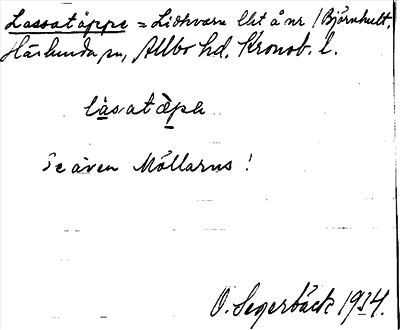 Lassatäppe = Lidhvarn lht å nr 1 Björnhult,
Härlunda sn, Allbo hd. Kronob. l.
lasatäpa
Se även Möllarns !
O. Segerbäck 1934.